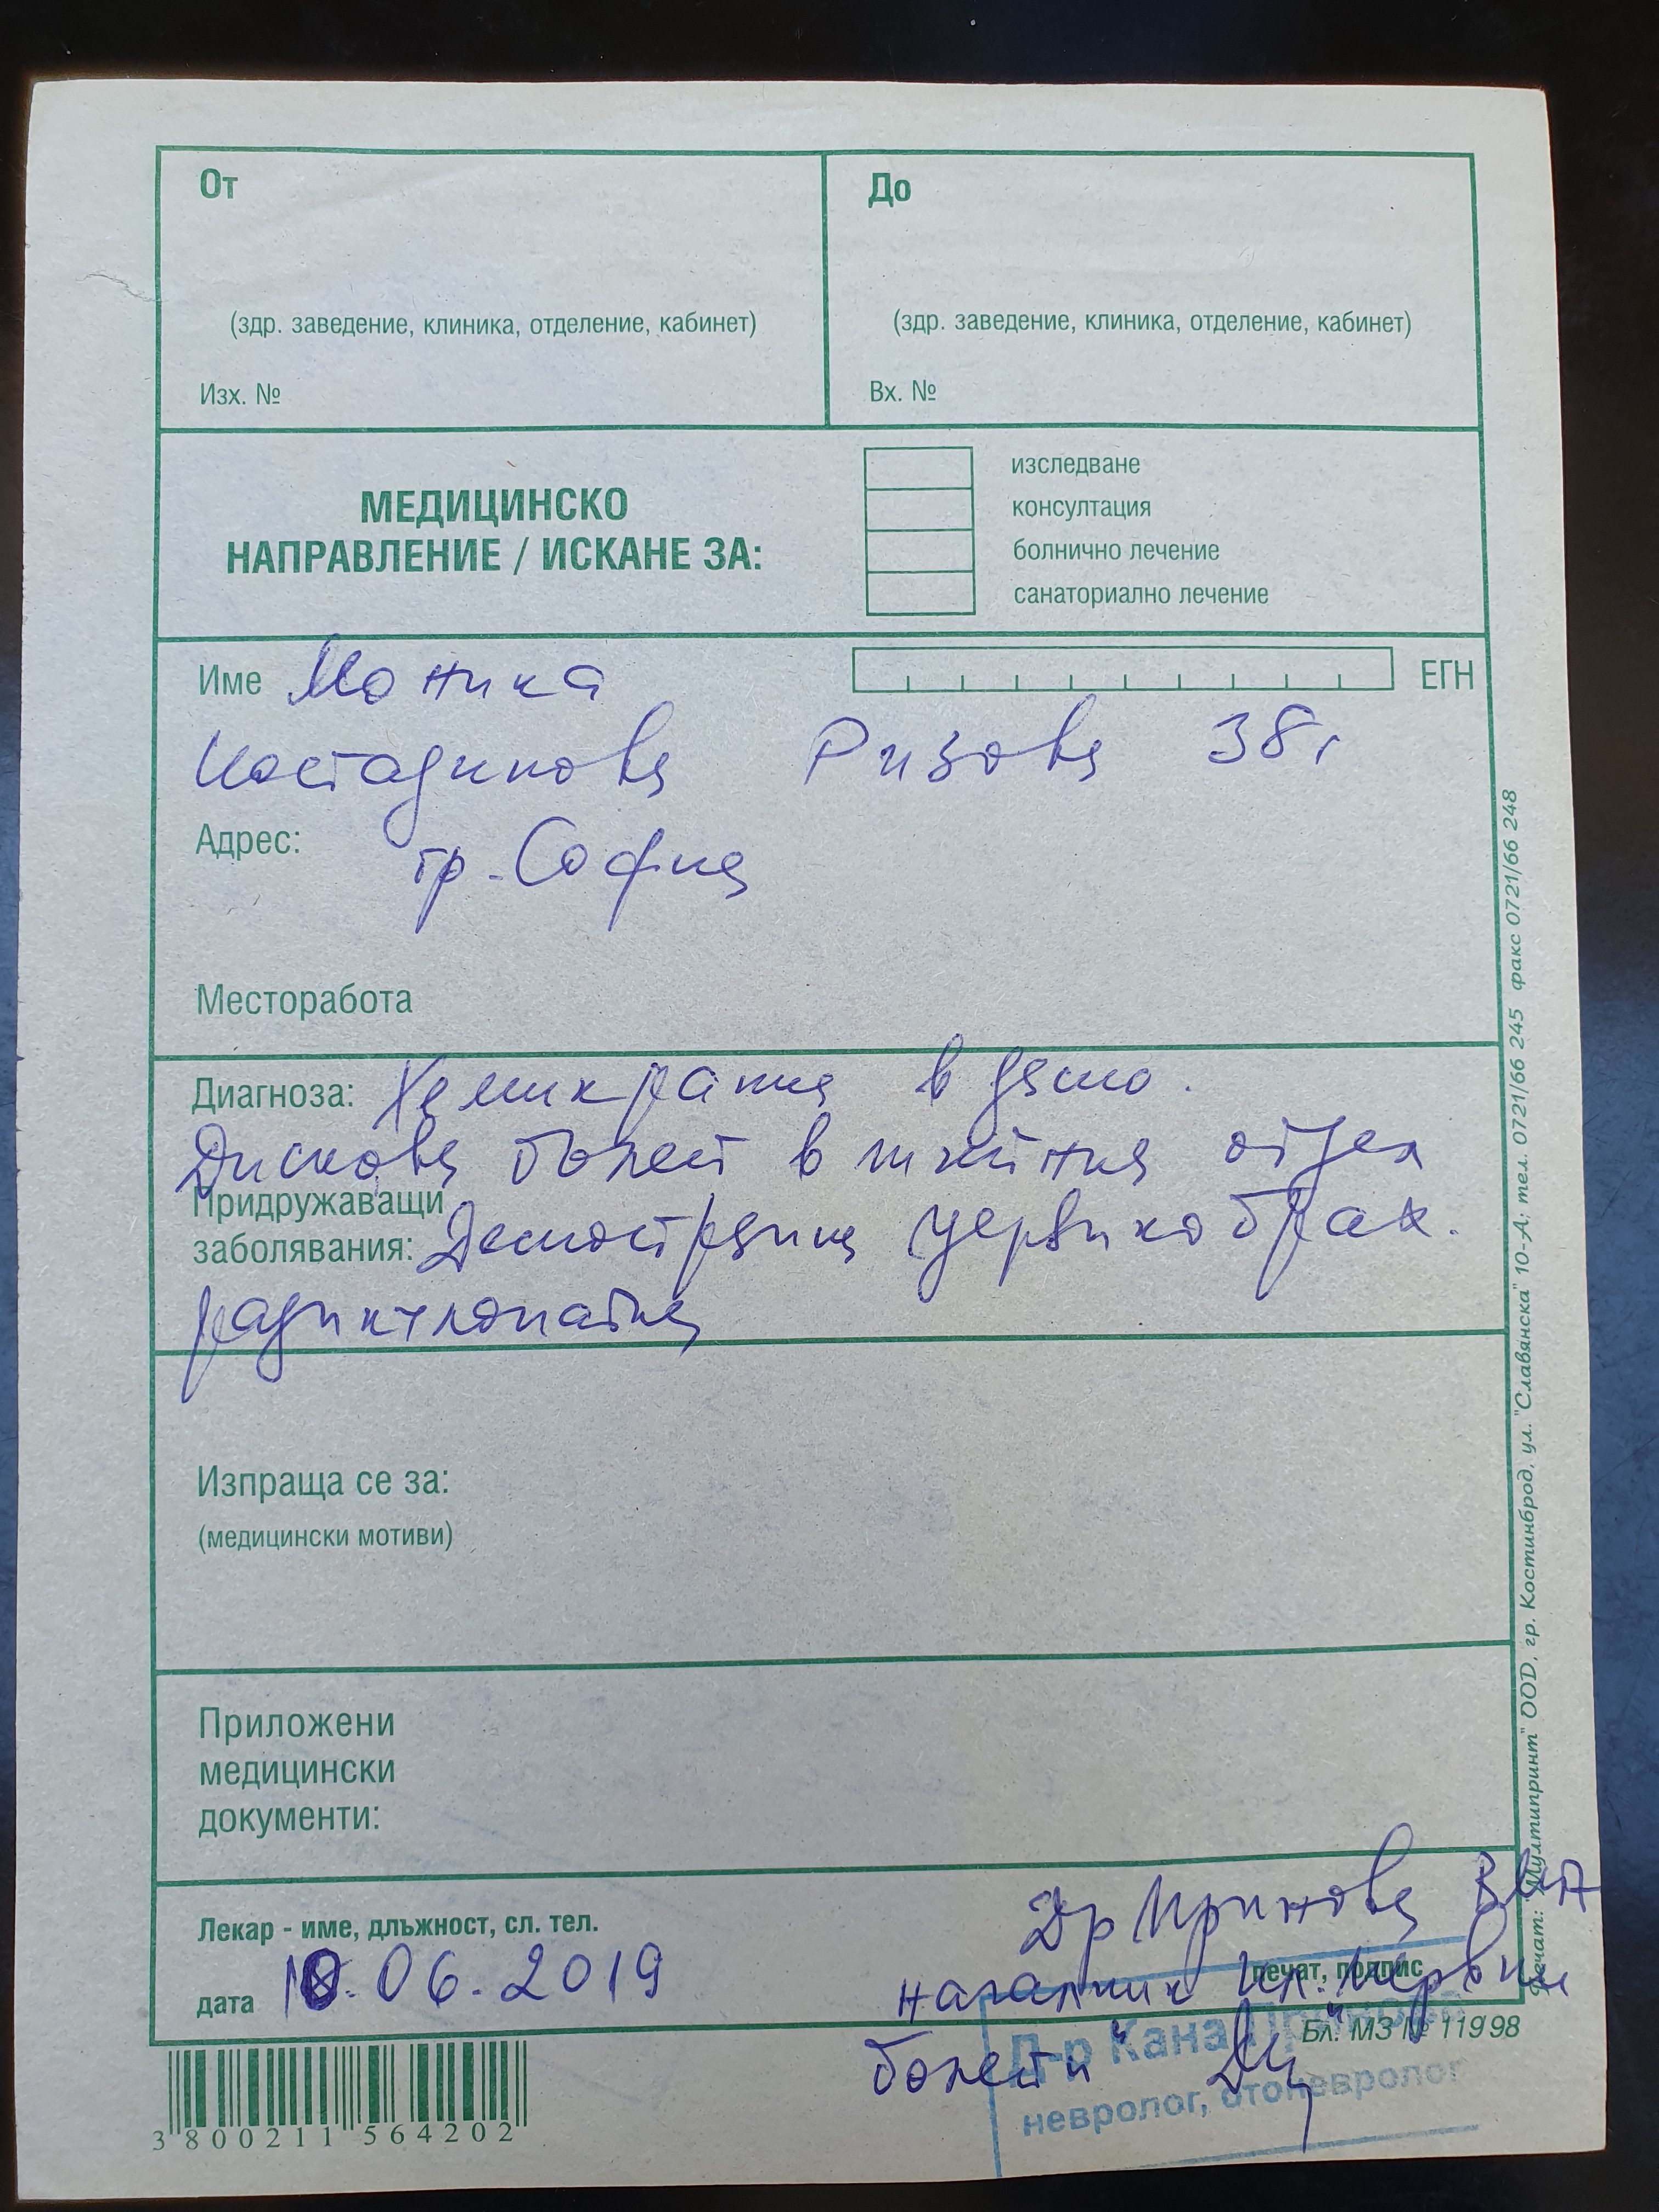 От
До
(здр. заведение, клиника, отделение, кабинет)
(здр. заведение, клиника, отделение, кабинет)
Изх. №
Вх. №
МЕДИЦИНСКО
НАПРАВЛЕНИЕ / ИСКАНЕ ЗА:
изследване
консултация
болнично лечение
санаториално лечение
Име Моника
ЕГН
Костадинова Ризова 38г
Адрес: гр. София
Месторабота
Диагноза: Хемикрания в дясно.
Дискова болест в шийния отдел
Придружаващи
заболявания: Десностранна цервикобрах.
радикулопатия
Изпраща се за:
(медицински мотиви)
Приложени
медицински
документи:
Лекар - име, длъжност, сл. тел.
Др
дата 10.06.2019
печат, подпис
началник Кл. Нервни
болести
Бл. МЗ № 119 98
Д-р Кана
невролог, отоневролог
3 800211 564202
Печат: "Мултипринт" ООД, гр. Костинброд, ул. "Славянска" 10-А; тел. 0721/66 245 факс 0721/66 248